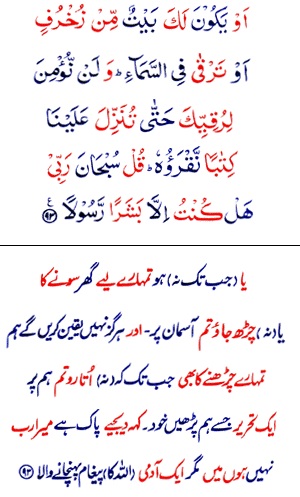 اَوْ يَكُوْنَ لَكَ بَيْتٌ مِّنْ زُخْرُفٍ
اَوْ تَرْقٰى فِي السَّمَآءِ ؕ وَ لَنْ نُّؤْمِنَ
لِرُقِيِّكَ حَتّٰى تُنَزِّلَ عَلَيْنَا
كِتٰبًا نَّقْرَؤُهٗ ؕ قُلْ سُبْحَانَ رَبِّيْ
هَلْ كُنْتُ اِلَّا بَشَرًا رَّسُوْلًا ﴿۹۳﴾ ع
یا (جب تک نہ) ہو تمہارے لیے گھر سونے کا
یا (نہ) چڑھ جاؤ تم آسمان پر۔ اور ہرگز نہیں یقین کریں گے ہم
تمہارے چڑھنے کا بھی جب تک کہ (نہ) اُتارو تم ہم پر
ایک تحریر جسے ہم پڑھیں خود۔ کہہ دیجیے پاک ہے میرا رب
نہیں ہوں میں مگر ایک آدمی (اللہ کا) پیغام پہنچانے والا ﴿۹۳﴾